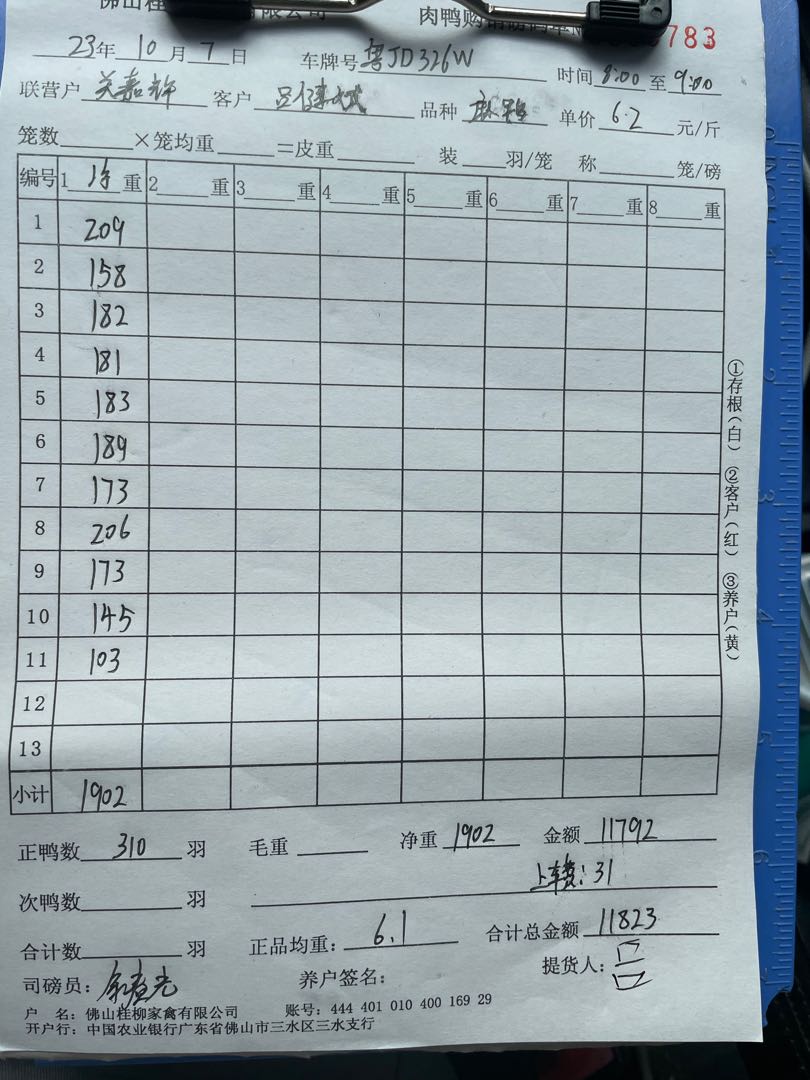 佛山桂 有限公司 肉鸭购销磅码单№ 783
23年 10 月 7 日 车牌号 粤JD326W 时间 8:00 至 9:00
联营户 关嘉辉 客户 品种 单价 6.2 元/斤
笼数 ×笼均重 =皮重 装 羽/笼 称 笼/磅
编号 1 净 重 2 重 3 重 4 重 5 重 6 重 7 重 8 重
1 209
2 158
3 182
4 181
5 183
6 189
7 173
8 206
9 173
10 145
11 103
12
13
小计 1902
①存根(白) ②客户(红) ③养户(黄)
正鸭数 310 羽 毛重 净重 1902 金额 11792
上车费: 31
次鸭数 羽
合计数 羽 正品均重: 6.1 合计总金额 11823
司磅员: 养户签名: 提货人: 吕
户 名: 佛山桂柳家禽有限公司 账号: 444 401 010 400 169 29
开户行: 中国农业银行广东省佛山市三水区三水支行